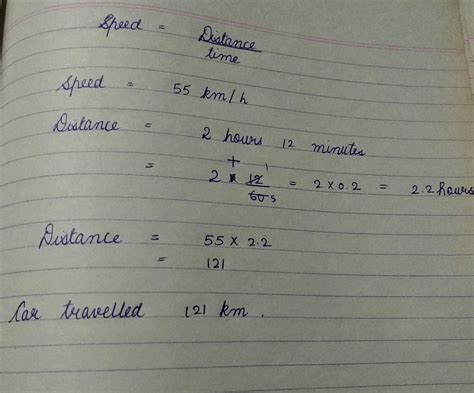 Speed = Distance / time
Speed = 55 km/h
Distance = 2 hours 12 minutes
= 2 + 12/60 5 = 2 x 0.2 = 2.2 hours
Distance = 55 x 2.2
= 121
Car travelled 121 km.